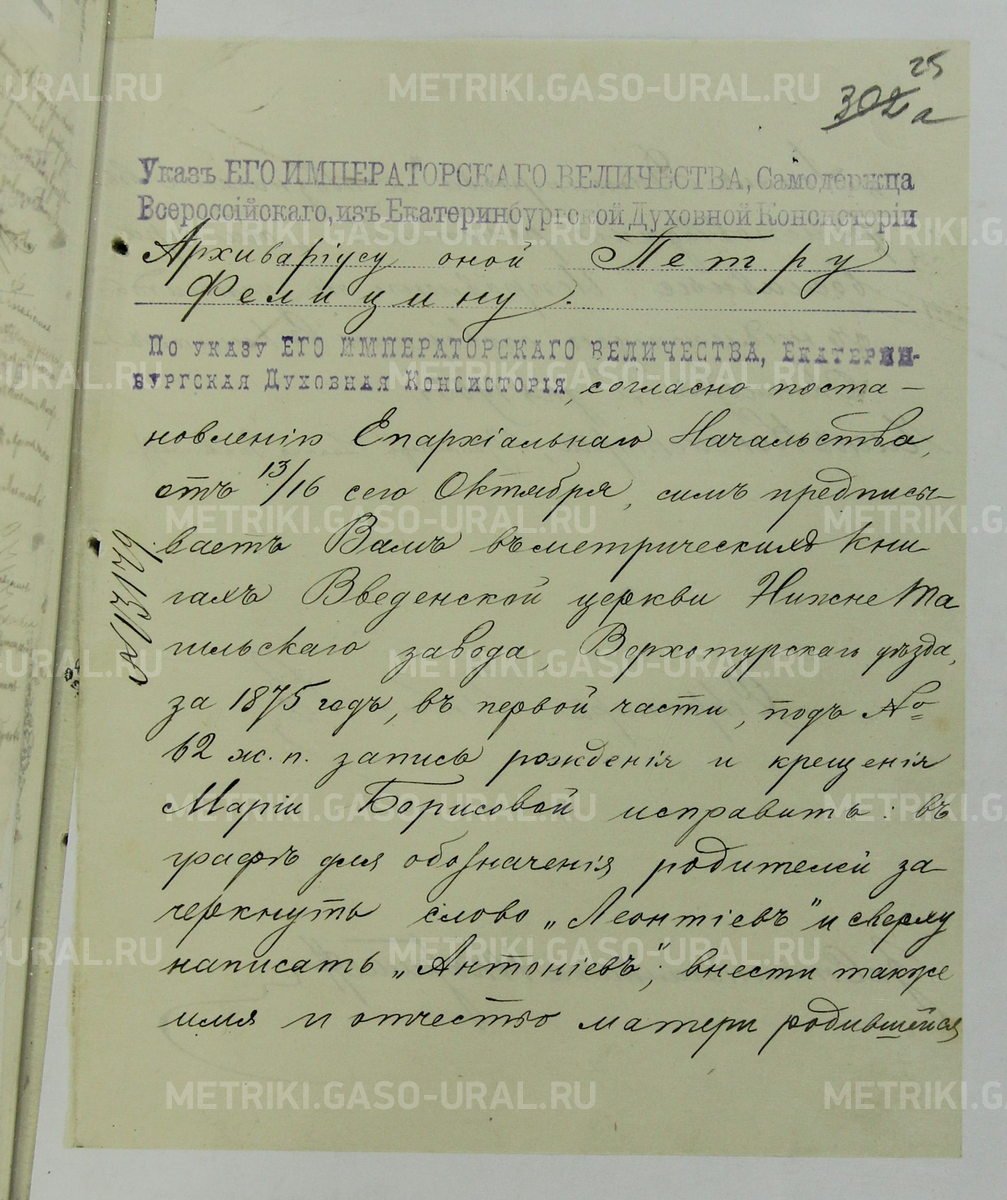 25
302 а
Указъ ЕГО ИМПЕРАТОРСКАГО ВЕЛИЧЕСТВА, Самодержца
Всероссійскаго, изъ Екатеринбургской Духовной Консисторіи
Архиваріусу оной Петру
Фелицину.
По указу ЕГО ИМПЕРАТОРСКАГО ВЕЛИЧЕСТВА, Екатерин-
бургская Духовная Консисторія, согласно поста-
новленію Епархіальнаго Начальства,
отъ 13/16 сего Октября, симъ предписы-
ваетъ Вамъ въ метрическихъ кни-
гахъ Введенской церкви Нижне Та
гильскаго завода, Верхотурскаго уѣзда,
за 1875 годъ, въ первой части, подъ №
62 ж. п. запись рожденія и крещенія
Маріи Борисовой исправить: въ
графѣ для обозначенія родителей за-
черкнуть слово „Леонтіевъ" и сверху
написать „Антоніевъ"; внести также
имя и отчество матери родившейся
№ 13179
METRIKI.GASO-URAL.RU